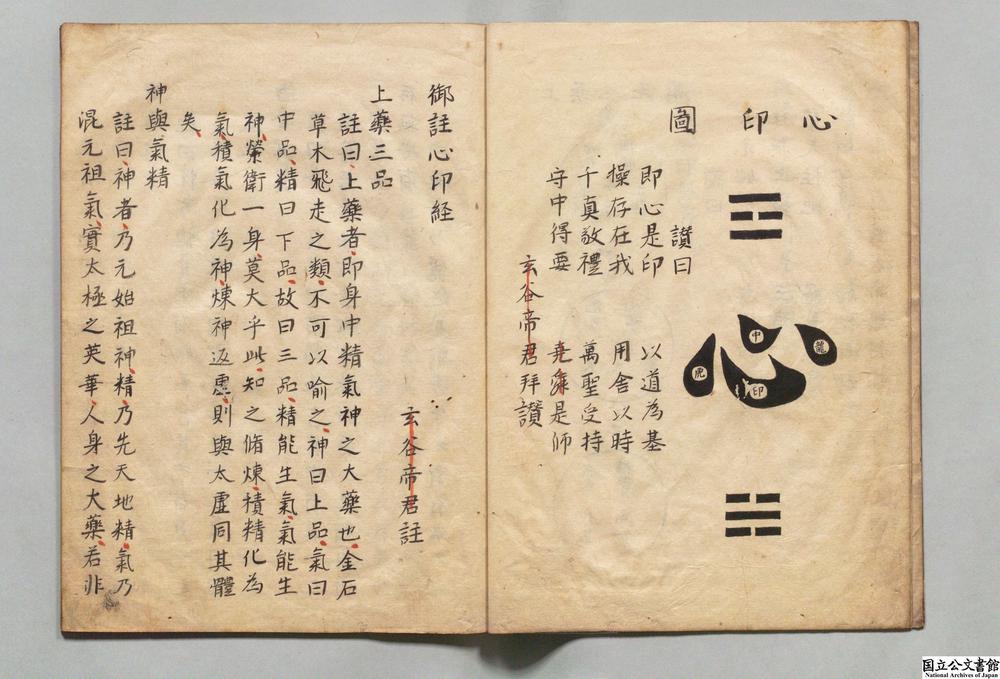 心印圖
中
龍
虎
印
讃曰
即心是印 以道為基
操存在我 用舍以時
千真敬禮 萬聖受持
守中得要 堯舜是師
玄谷帝君拜讃
御註心印経
玄谷帝君註
上藥三品
註曰上藥者即身中精氣神之大藥也金石
草木飛走之類不可以喻之神曰上品氣曰
中品精曰下品故曰三品精能生氣氣能生
神榮衛一身莫大乎此知之脩煉積精化為
氣積氣化為神煉神返虛則與太虛同其體
矣
神與氣精
註曰神者乃元始祖神精乃先天地精氣乃
混元祖氣實太極之英華人身之大藥若非
国立公文書館
National Archives of Japan